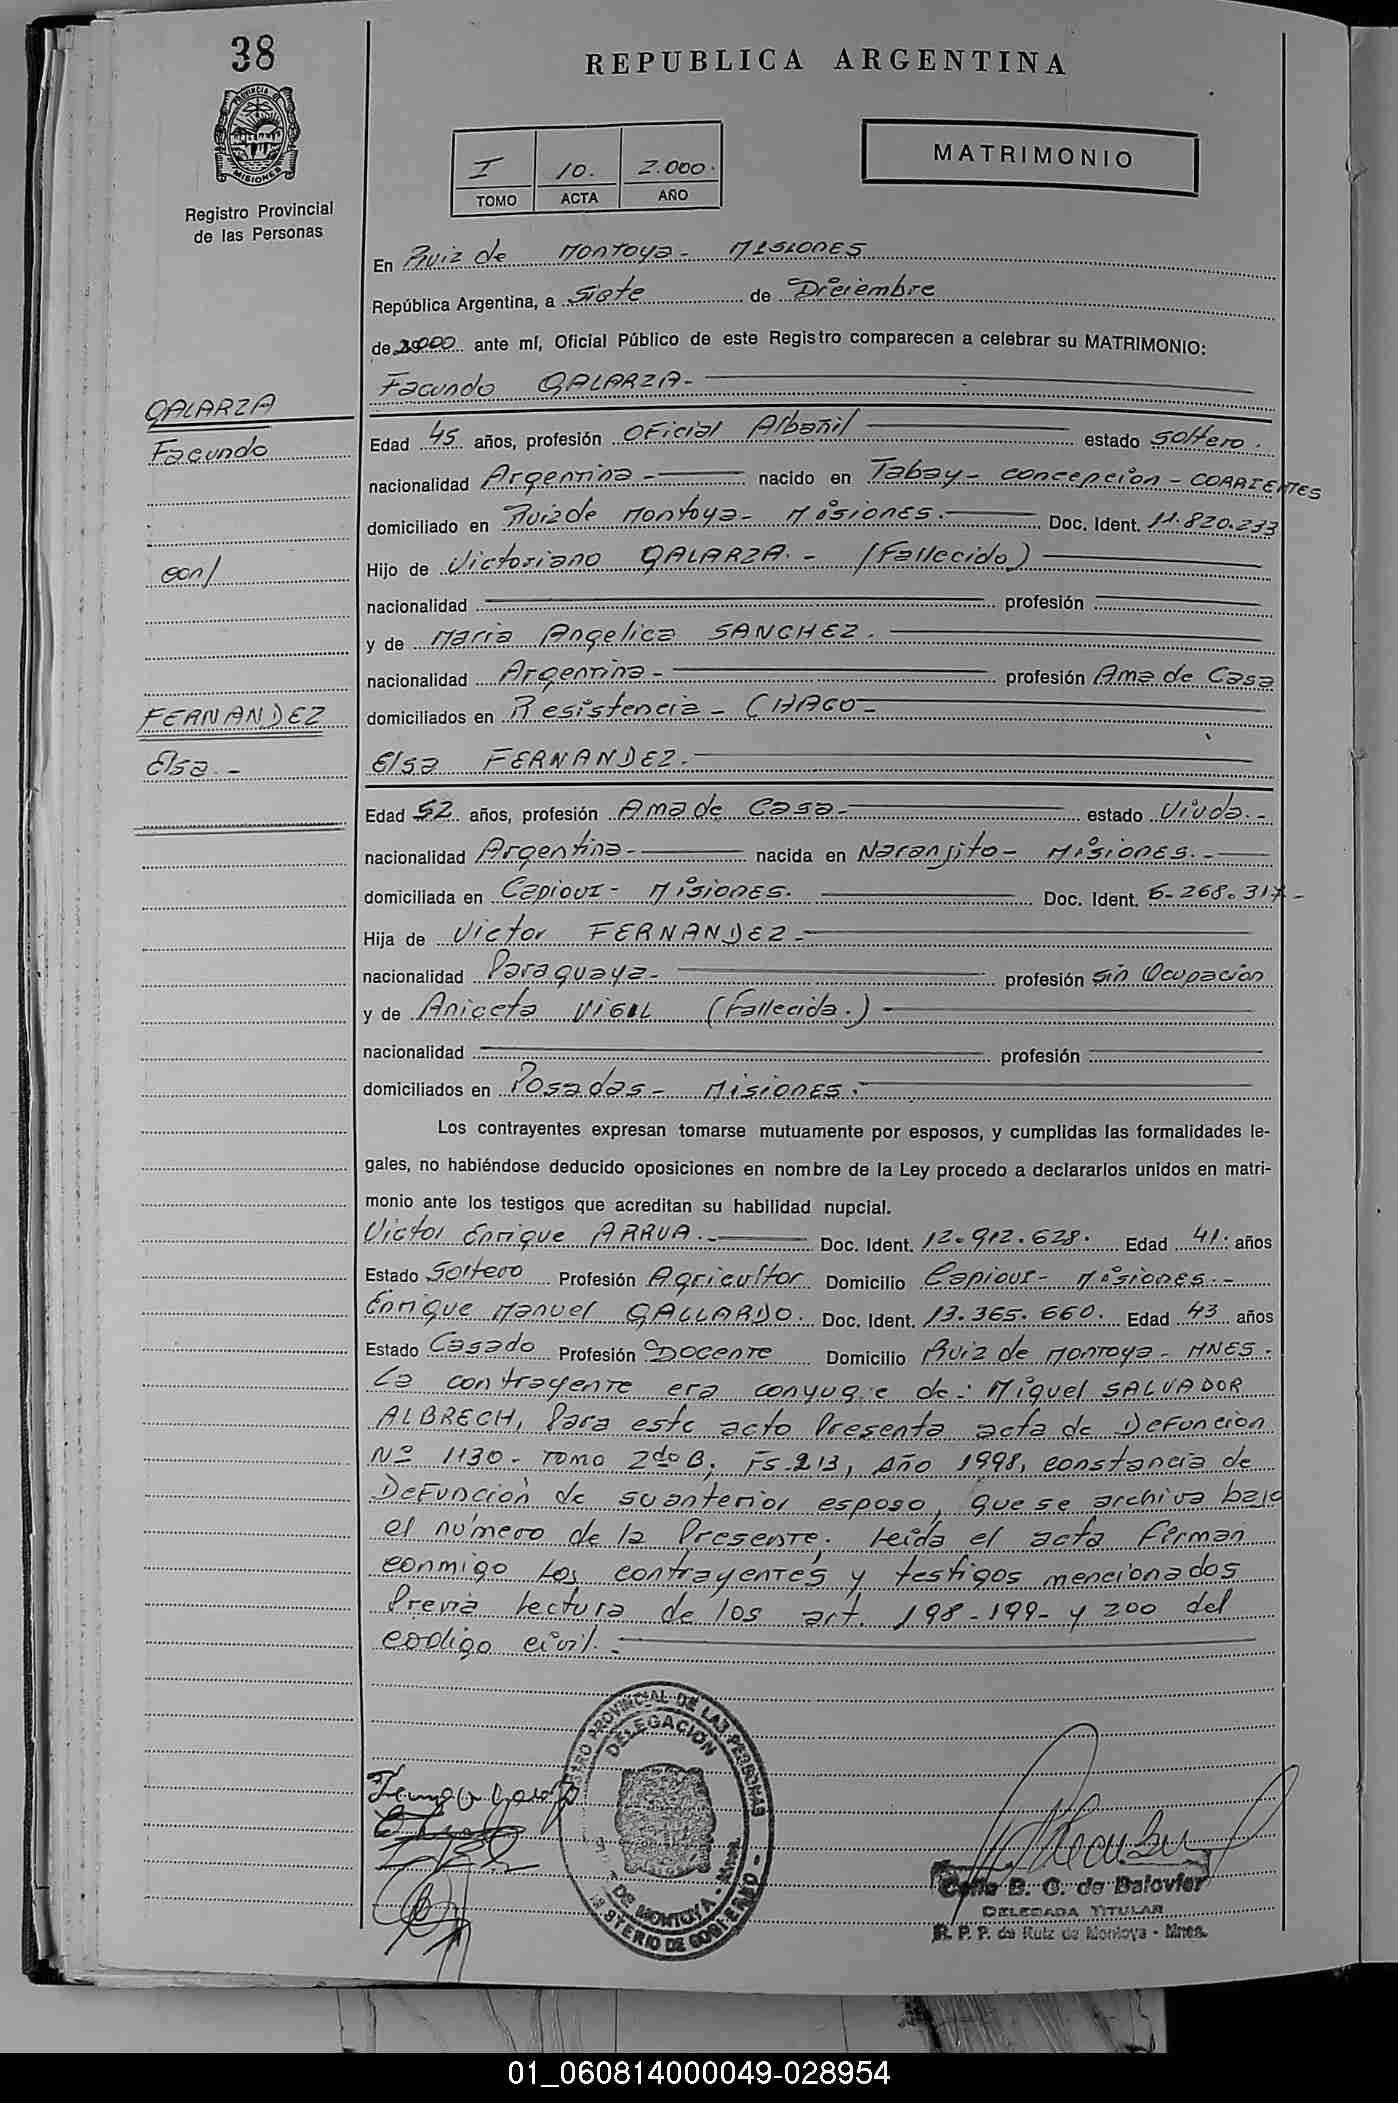 38
PROVINCIA DE
MISIONES
Registro Provincial
de las Personas
REPUBLICA ARGENTINA
I 10. 2.000.
TOMO ACTA AÑO
MATRIMONIO
En Ruiz de Montoya - MISIONES
República Argentina, a Siete de Diciembre
de 2000 ante mí, Oficial Público de este Registro comparecen a celebrar su MATRIMONIO:
Facundo GALARZA.-
GALARZA
Facundo
con/
FERNANDEZ
Elsa.-
Edad 45 años, profesión Oficial Albañil estado Soltero.
nacionalidad Argentina- nacido en Tabay- concepción - CORRIENTES
domiciliado en Ruiz de Montoya- Misiones.- Doc. Ident. 11.820.233
Hijo de Victoriano GALARZA.- (Fallecido)
nacionalidad profesión
y de Maria Angelica SANCHEZ.
nacionalidad Argentina- profesión Ama de Casa
domiciliados en Resistencia - CHACO-
Elsa FERNANDEZ.
Edad 52 años, profesión Ama de Casa- estado Viuda.-
nacionalidad Argentina- nacida en Naranjito- Misiones.-
domiciliada en Capiovi- Misiones. Doc. Ident. 6.268.317-
Hija de Victor FERNANDEZ-
nacionalidad Paraguaya- profesión sin Ocupación
y de Aniceta VIGIL (Fallecida.)
nacionalidad profesión
domiciliados en Posadas- Misiones.
Los contrayentes expresan tomarse mutuamente por esposos, y cumplidas las formalidades le-
gales, no habiéndose deducido oposiciones en nombre de la Ley procedo a declararlos unidos en matri-
monio ante los testigos que acreditan su habilidad nupcial.
Victor Enrique ARRUA.- Doc. Ident. 12.912.628. Edad 41. años
Estado Soltero Profesión Agricultor Domicilio Capiovi- Misiones.-
Enrique Manuel GALLARDO. Doc. Ident. 13.365.660. Edad 43 años
Estado Casado Profesión Docente Domicilio Ruiz de Montoya- MNES.
La contrayente era conyuge de: Miguel SALVADOR
ALBRECH, Para este acto Presenta acta de Defuncion
Nº 1130- Tomo 2do B, Fs. 213, Año 1998, constancia de
Defunción de su anterior esposo, que se archiva bajo
el número de la Presente. Leida el acta Firman
conmigo los contrayentes y testigos mencionados
Previa Lectura de los art. 198-199- y 200 del
codigo civil.-
PROVINCIAL DE LAS PERSONAS
DELEGACION
DE MONTOYA - Mnes.
MINISTERIO DE GOBIERNO -
B. G. de Balovier
DELEGADA TITULAR
R. P. P. de Ruiz de Montoya - Mnes.
01_060814000049-028954